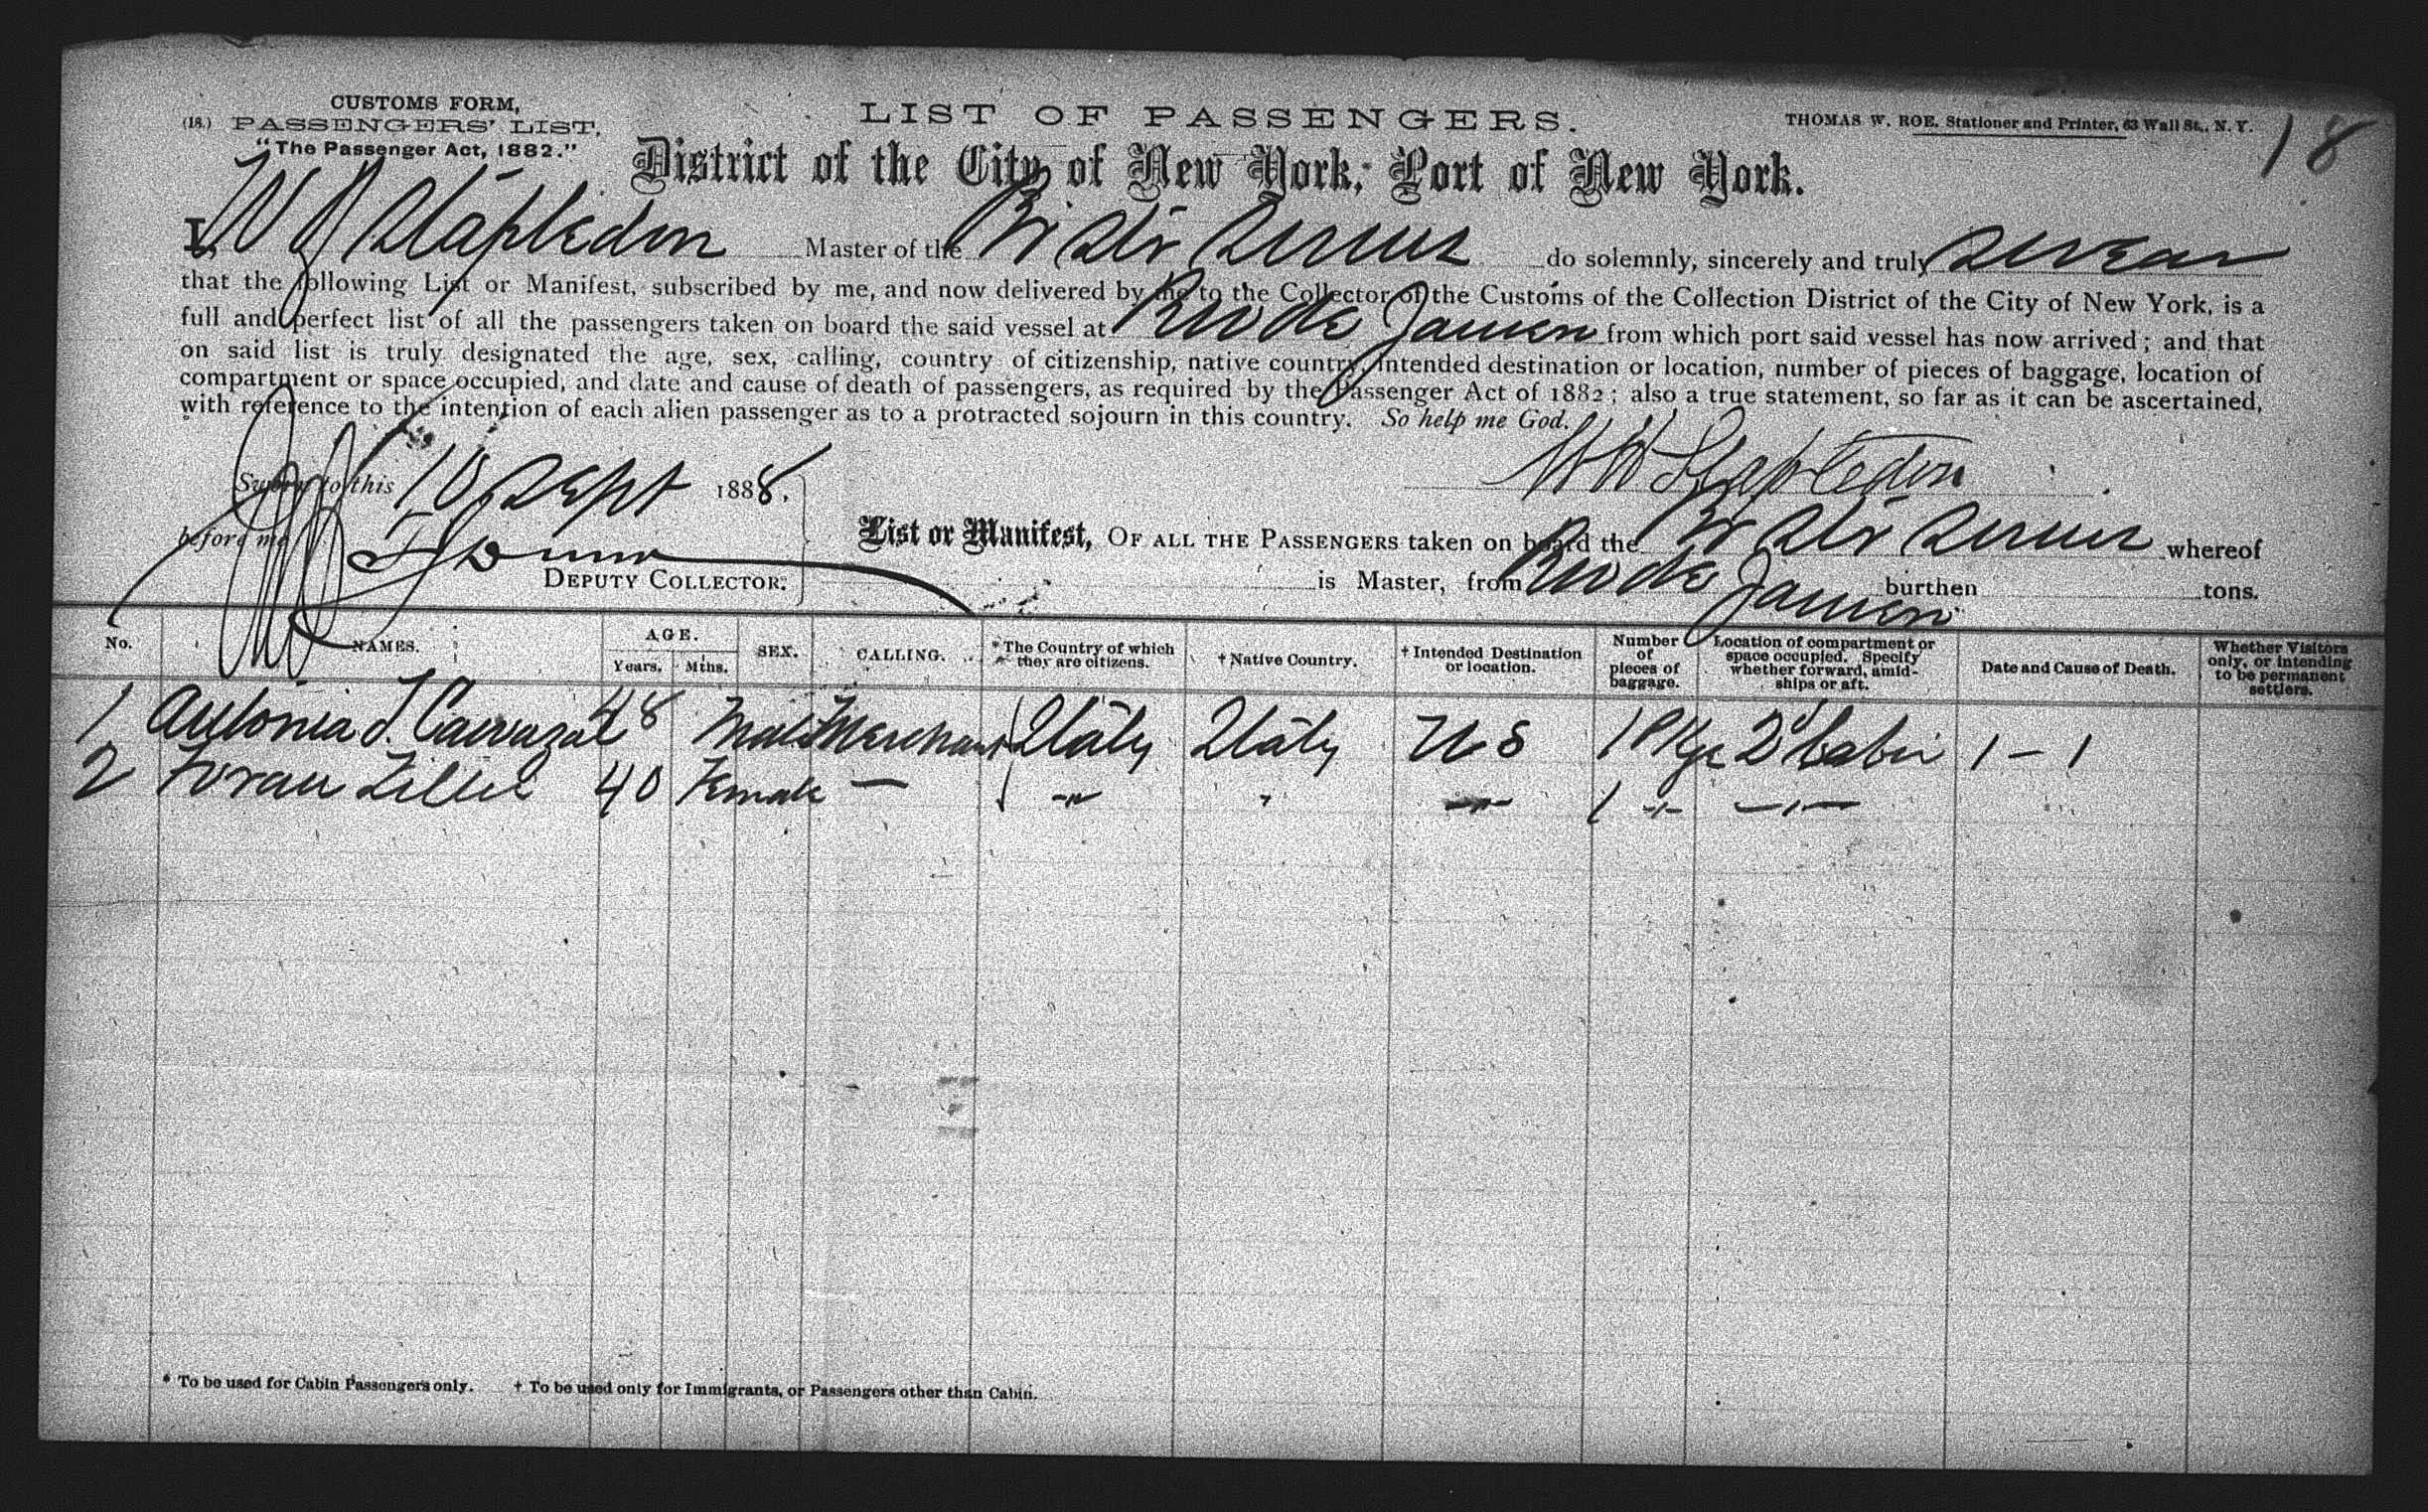 CUSTOMS FORM,
(18.) PASSENGERS' LIST,
"The Passenger Act, 1882."
LIST OF PASSENGERS.
THOMAS W. ROE, Stationer and Printer, 63 Wall St., N. Y.
18
District of the City of New York, Port of New York.
I, W Stapledon Master of the Br Str Sirius do solemnly, sincerely and truly swear
that the following List or Manifest, subscribed by me, and now delivered by me to the Collector of the Customs of the Collection District of the City of New York, is a
full and perfect list of all the passengers taken on board the said vessel at Rio de Janero from which port said vessel has now arrived; and that
on said list is truly designated the age, sex, calling, country of citizenship, native country, intended destination or location, number of pieces of baggage, location of
compartment or space occupied, and date and cause of death of passengers, as required by the Passenger Act of 1882; also a true statement, so far as it can be ascertained,
with reference to the intention of each alien passenger as to a protracted sojourn in this country. So help me God.
Sworn to this 10 Sept 1888.
W Stapledon
before me
DEPUTY COLLECTOR.
List or Manifest, OF ALL THE PASSENGERS taken on board the Br Str Sirius whereof
is Master, from Rio de Janero burthen tons.
No. NAMES. AGE. Years. Mths. SEX. CALLING. * The Country of which they are citizens. † Native Country. † Intended Destination or location. Number of pieces of baggage. Location of compartment or space occupied. Specify whether forward, amidships or aft. Date and Cause of Death. Whether Visitors only, or intending to be permanent settlers.
1 Antonia 48 Male Merchant Italy Italy U S 1 Pkge 2d Cabin 1 - 1
2 40 Female — " " " 1 " "
* To be used for Cabin Passengers only. † To be used only for Immigrants, or Passengers other than Cabin.